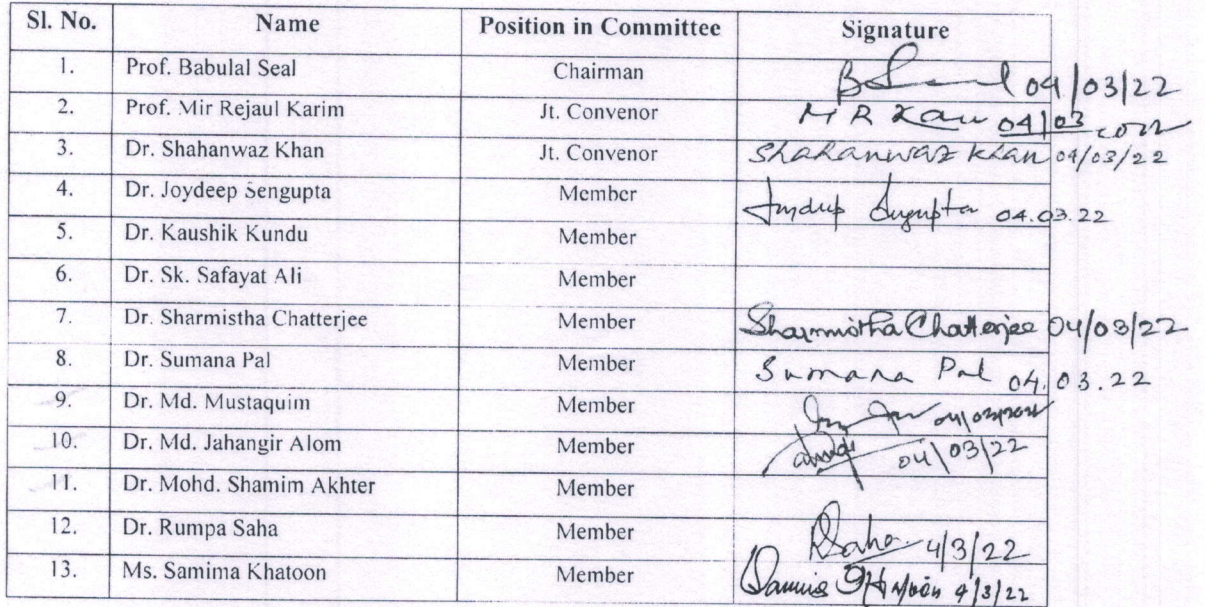 Sl. No. Name Position in Committee Signature
1. Prof. Babulal Seal Chairman 04/03/22
2. Prof. Mir Rejaul Karim Jt. Convenor M R 04/03
3. Dr. Shahanwaz Khan Jt. Convenor Shahanwaz Khan 04/03/22
4. Dr. Joydeep Sengupta Member 04.03.22
5. Dr. Kaushik Kundu Member
6. Dr. Sk. Safayat Ali Member
7. Dr. Sharmistha Chatterjee Member Sharmistha Chatterjee 04/03/22
8. Dr. Sumana Pal Member Sumana Pal 04.03.22
9. Dr. Md. Mustaquim Member
10. Dr. Md. Jahangir Alom Member 04/03/22
11. Dr. Mohd. Shamim Akhter Member
12. Dr. Rumpa Saha Member Saha 4/3/22
13. Ms. Samima Khatoon Member 4/3/22